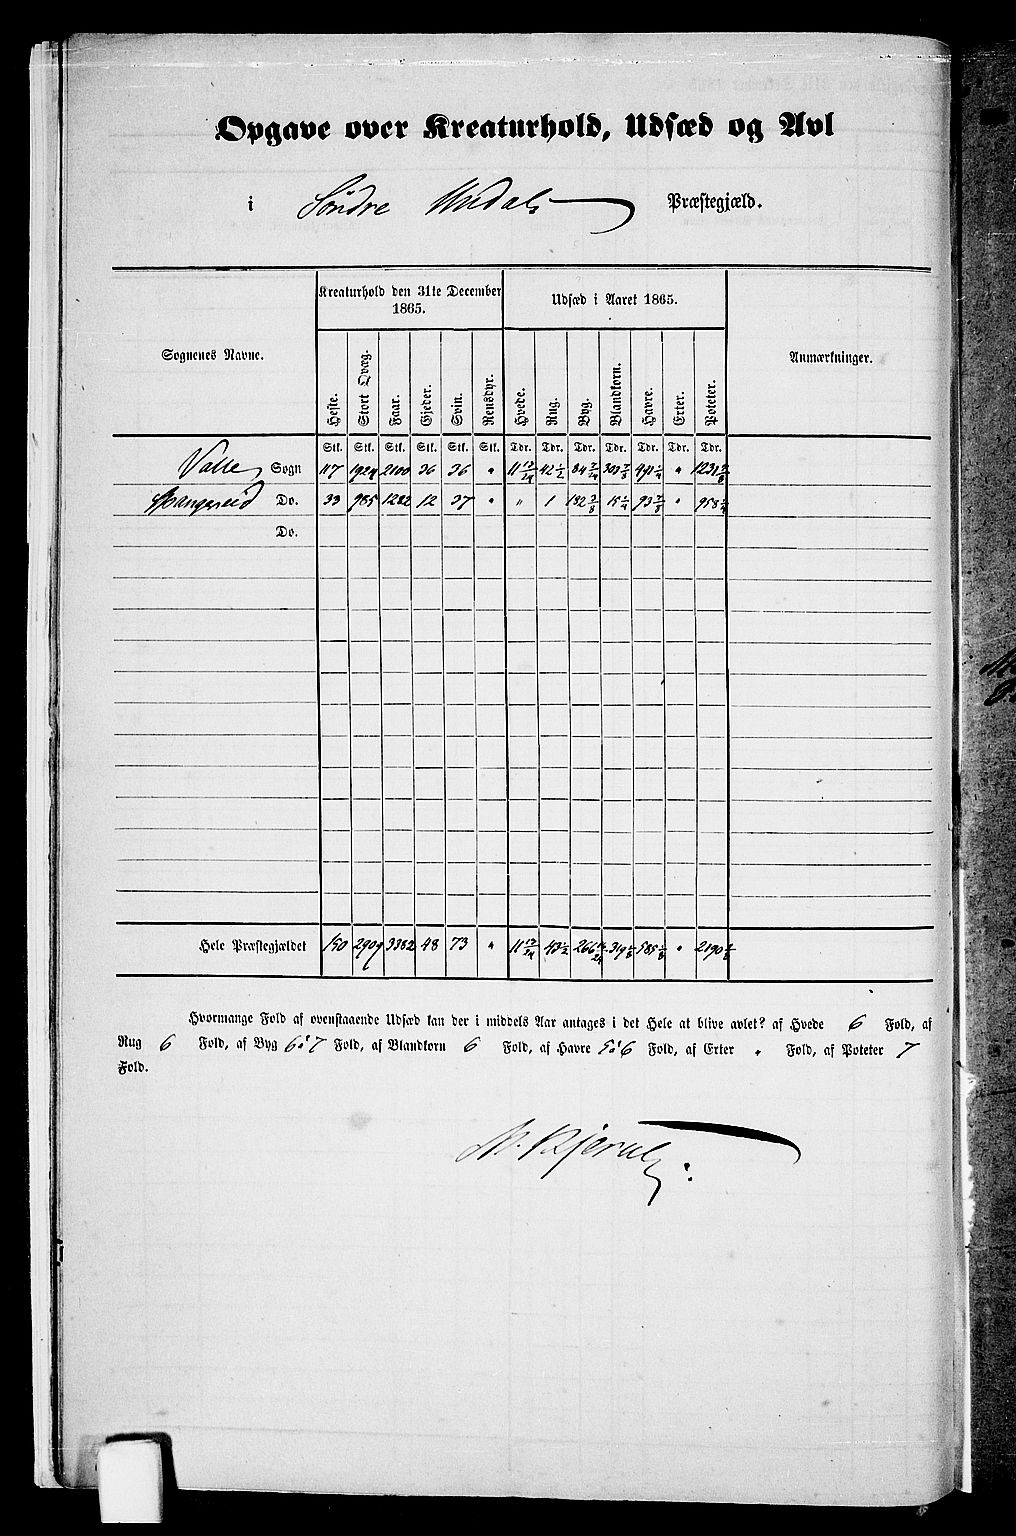 Opgave over Kreaturhold, Udsæd og Avl
i Søndre Undals Præstegjæld.
Sognenes Navne. Kreaturhold den 31te December 1865. Udsæd i Aaret 1865. Anmærkninger.
Heste. Stort Qvæg. Faar. Gjeder. Svin. Rensdyr. Hvede. Rug. Byg. Blandkorn. Havre. Erter. Poteter.
Stk. Stk. Stk. Stk. Stk. Stk. Tdr. Tdr. Tdr. Tdr. Tdr. Tdr. Tdr.
Valle Sogn 117 1924 2100 36 36 " 11 13/24 42 1/2 84 303 491 1/4 " 1231
Spangereid Do. 33 985 1282 12 37 " " 1 182 3/8 15 1/4 93 " 958
Do.
Hele Præstegjældet 150 2909 3382 48 73 " 11 13/24 43 1/2 266 319 1/8 585 " 2190
Hvormange Fold af ovenstaaende Udsæd kan der i middels Aar antages i det Hele at blive avlet? af Hvede 6 Fold, af
Rug 6 Fold, af Byg 6 à 7 Fold, af Blandkorn 6 Fold, af Havre 5 à 6 Fold, af Erter " Fold, af Poteter 7
Fold.